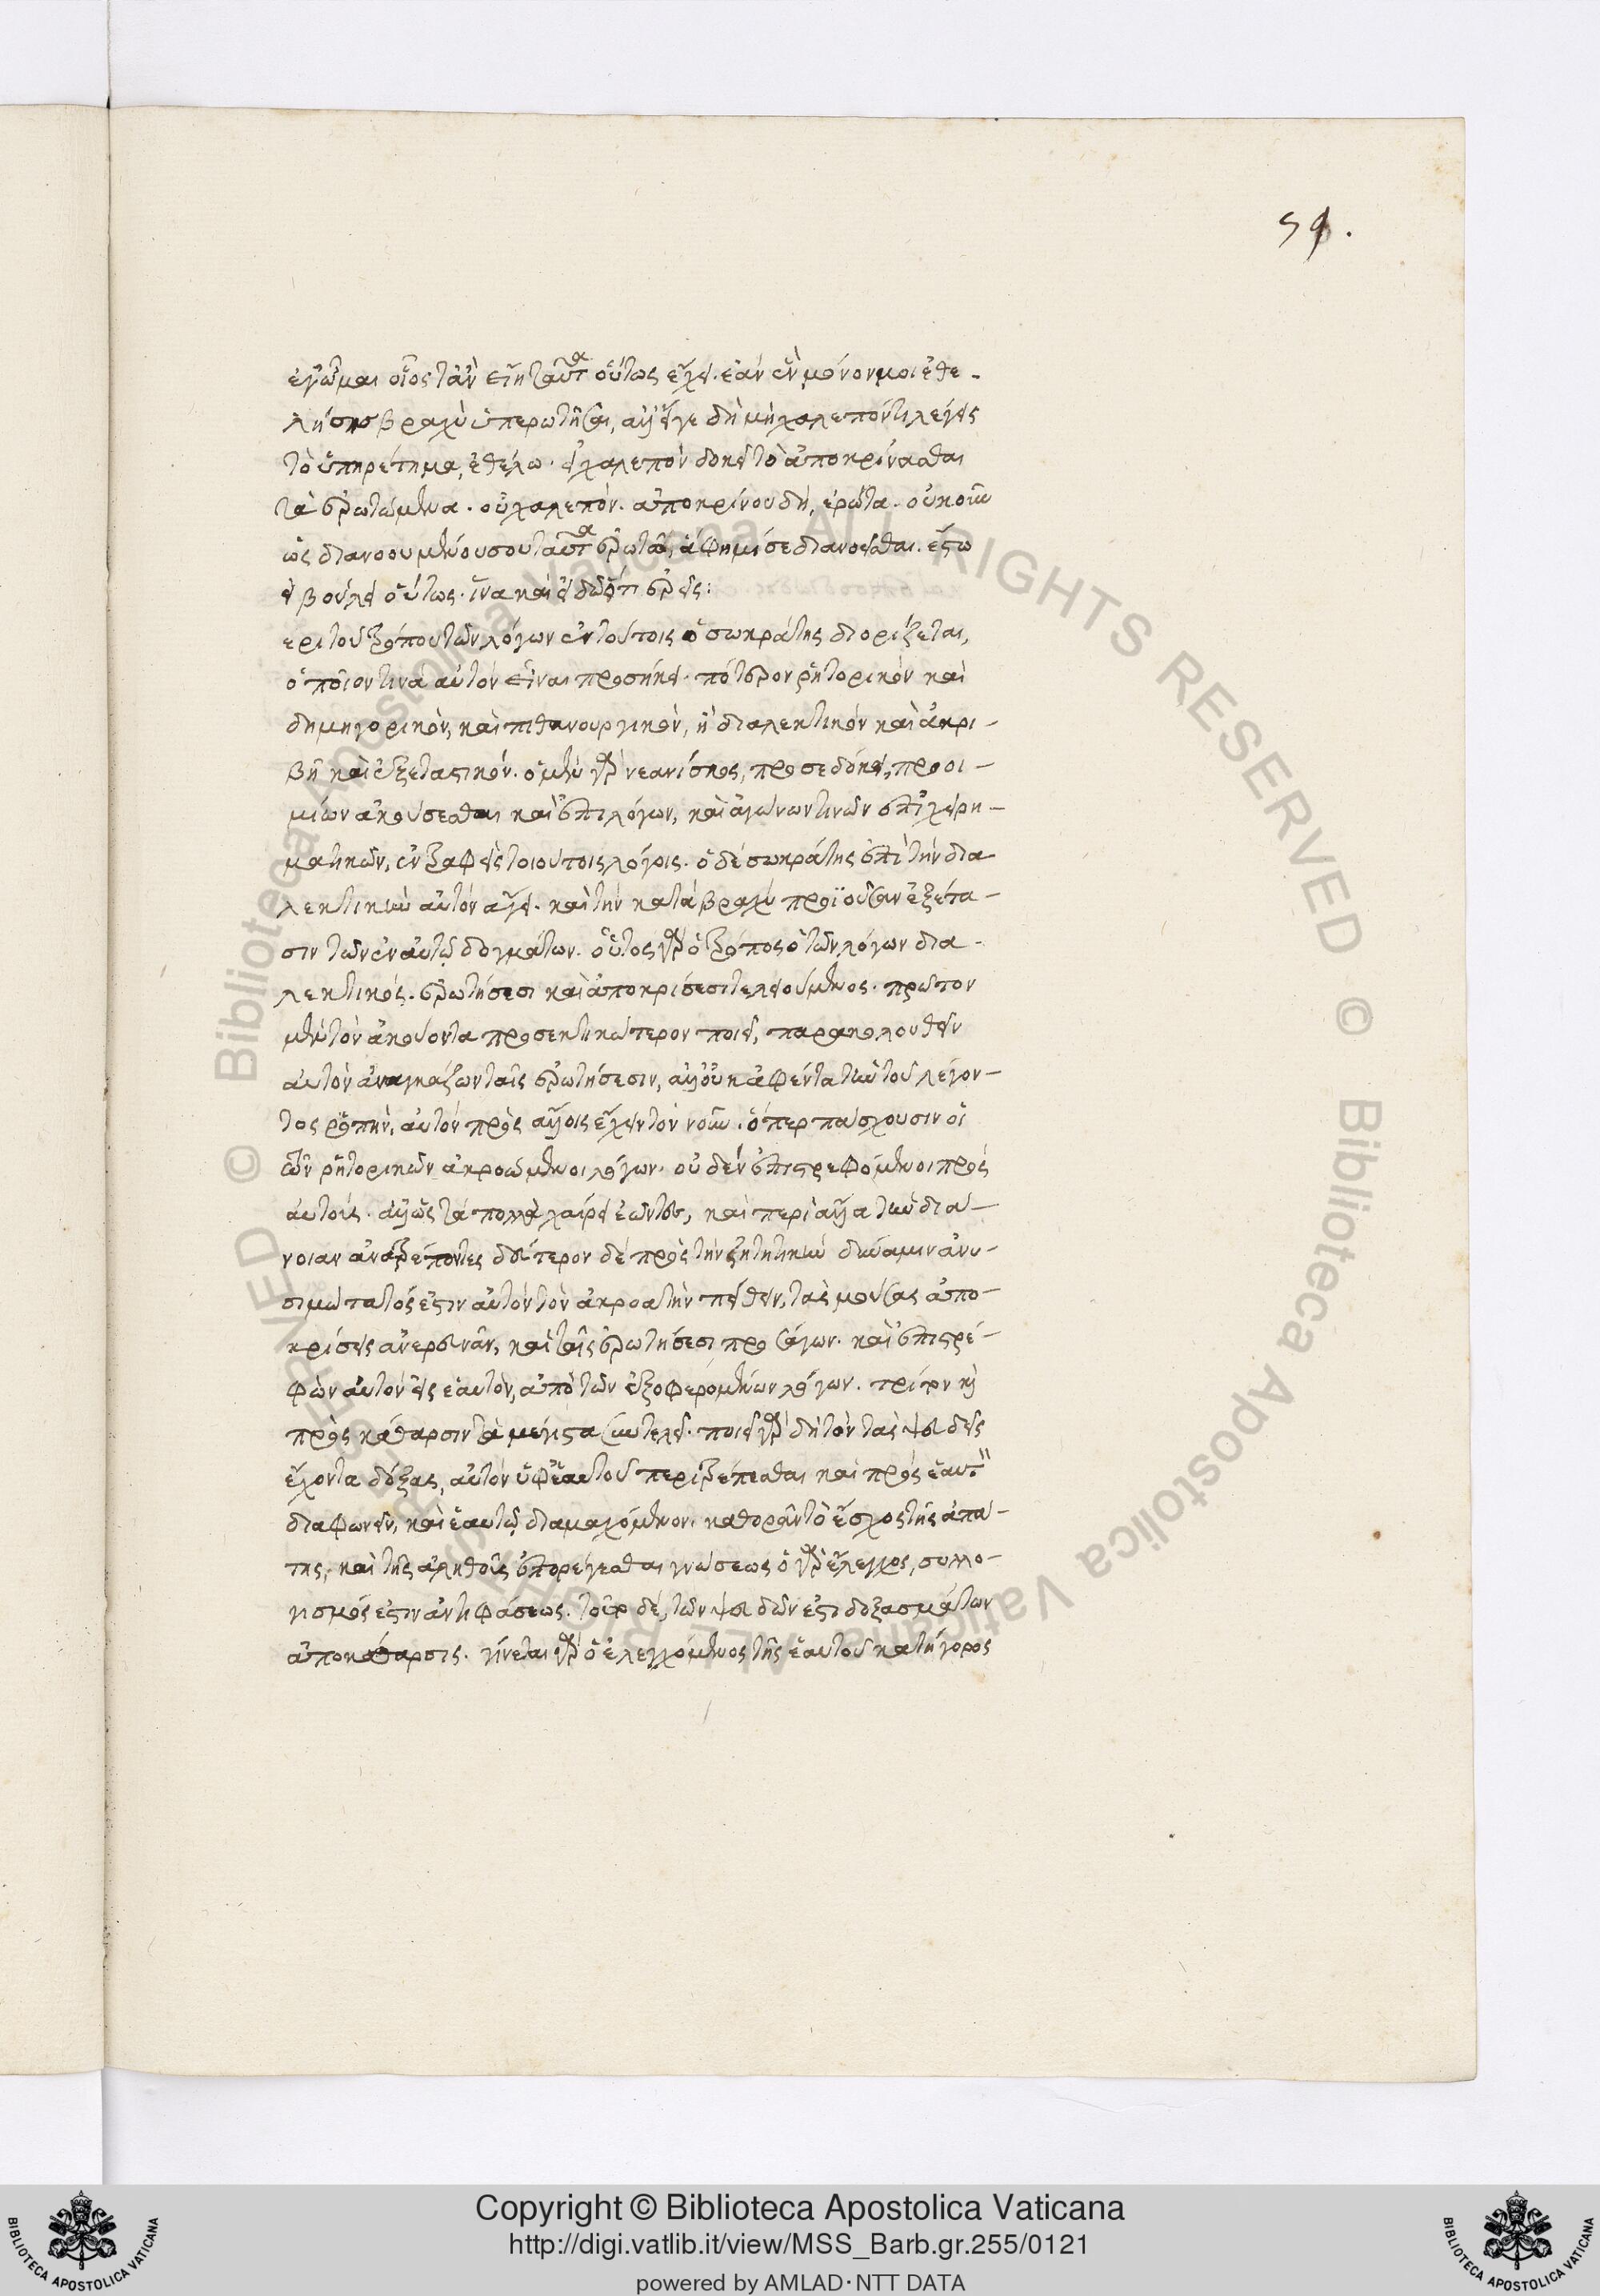 59.
ἐγῷμαι οἷος τἂν εἴη ταῦτα οὕτως ἔχει. ἐὰν ἓν μόνον μοι ἐθε-
λήσῃς βραχὺ ὑπερωτῆσαι, ἀλλ' εἴγε δὴ μὴ χαλεπόν τι λέγεις
τὸ ὑπηρέτημα, ἐθέλω. εἰ χαλεπὸν δοκεῖ τὸ ἀποκρίνασθαι
τὰ ἐρωτώμενα. οὐ χαλεπόν. ἀποκρίνου δή, ἐρώτα. οὐκοῦν
ὡς διανοουμένου σου ταῦτα ἐρωτῶ, ἅ φημί σε διανοεῖσθαι. ἔστω
εἰ βούλει οὕτως. ἵνα καὶ εἰδῶ ὅτι ἐρεῖς:
ερὶ τοῦ τρόπου τῶν λόγων ἐν τούτοις ὁ σωκράτης διορίζεται,
ὁποῖον τινα αὐτὸν εἶναι προσήκει. πότερον ῥητορικὸν καὶ
δημηγορικὸν, καὶ πιθανουργικὸν, ἢ διαλεκτικὸν καὶ ἀκρι-
βῆ καὶ ἐξεταστικόν. ὁ μὲν γὰρ νεανίσκος, προσεδόκει, προοι-
μίων ἀκούσεσθαι καὶ ἐπιλόγων, καὶ ἀγώνων τινῶν ἐπιχειρη-
ματικῶν, ἐντραφεὶς τοιούτοις λόγοις. ὁ δὲ σωκράτης ἐπὶ τὴν δια
λεκτικὴν αὐτὸν ἄγει. καὶ τὴν κατὰ βραχὺ προϊοῦσαν ἐξέτα-
σιν τῶν ἐν αὐτῷ δογμάτων. οὗτος γὰρ ὁ τρόπος ὁ τῶν λόγων δια-
λεκτικός. ἐρωτήσεσι καὶ ἀποκρίσεσι τελειούμενος. πρῶτον
μὲν τὸν ἀκούοντα προσεκτικώτερον ποιεῖ, παρακολουθεῖν
αὐτὸν ἀναγκάζων ταῖς ἐρωτήσεσιν, ἀλλ' οὐκ ἀφέντα τὴν τοῦ λέγον-
τος ῥοπὴν, αὐτὸν πρὸς ἄλλοις ἔχειν τὸν νοῦν. ὅπερ πάσχουσιν οἱ
τῶν ῥητορικῶν ἀκροώμενοι λόγων. οὐδὲν ἐπιστρεφόμενοι πρὸς
αὐτοὺς. ἀλλ' ὡς τὰ πολλὰ χαίρειν ἐῶντες, καὶ περὶ ἄλλα τὴν διά-
νοιαν ἀνατρέποντες δεύτερον δὲ πρὸς τὴν ζητητικὴν δύναμιν ἀνυ-
σιμώτατός ἐστιν αὐτὸν τὸν ἀκροατὴν πείθειν, τὰς μούσας ἀπο-
κρίσεις ἀνερευνᾶν, καὶ ταῖς ἐρωτήσεσι προσάγων. καὶ ἐπιστρέ-
φων αὐτὸν εἰς ἑαυτὸν, ἀπὸ τῶν ἐξοφερομένων λόγων. τρίτον κὴ
πρὸς κάθαρσιν τὰ μέγιστα συντελεῖ. ποιεῖ γὰρ δὴ τὸν τὰς ψευδεῖς
ἔχοντα δόξας, αὐτὸν ὑφ' ἑαυτοῦ περιτρέπεσθαι καὶ πρὸς ἑαυτὸν
διαφωνεῖν, καὶ ἑαυτῷ διαμαχόμενον. καθορᾶν τὸ αἶσχος τῆς ἀπά-
της, καὶ τῆς ἀληθοῦς ἐπορέγεσθαι γνώσεως ὁ γὰρ ἔλεγχος, συλλο-
γισμός ἐστιν ἀντιφάσεως. τοῦτο δὲ, τῶν ψευδῶν ἐστι δοξασμάτων
ἀποκάθαρσις. γίνεται γὰρ ὁ ἐλεγχόμενος τῆς ἑαυτοῦ κατήγορος
Copyright © Biblioteca Apostolica Vaticana
http://digi.vatlib.it/view/MSS_Barb.gr.255/0121
powered by AMLAD·NTT DATA